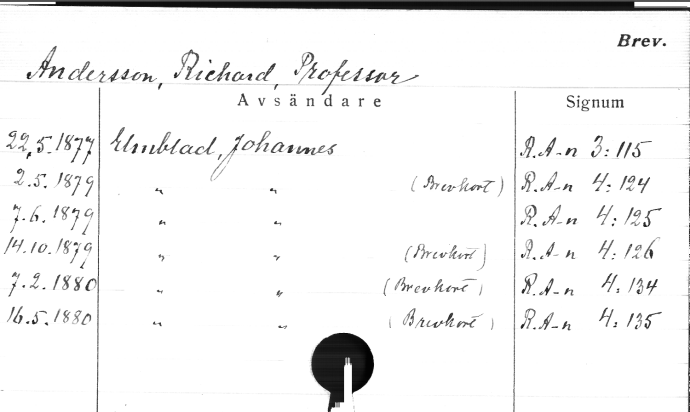 Brev.
Andersson, Richard, Professor
Avsändare Signum
22.5.1877 Elmblad, Johannes R.A-n 3:115
2.5.1879 " " (Brevkort) R.A-n 4:124
7.6.1879 " " R.A-n 4:125
14.10.1879 " " (Brevkort) R.A-n 4:126
7.2.1880 " " (Brevkort) R.A-n 4:134
16.5.1880 " " (Brevkort) R.A-n 4:135